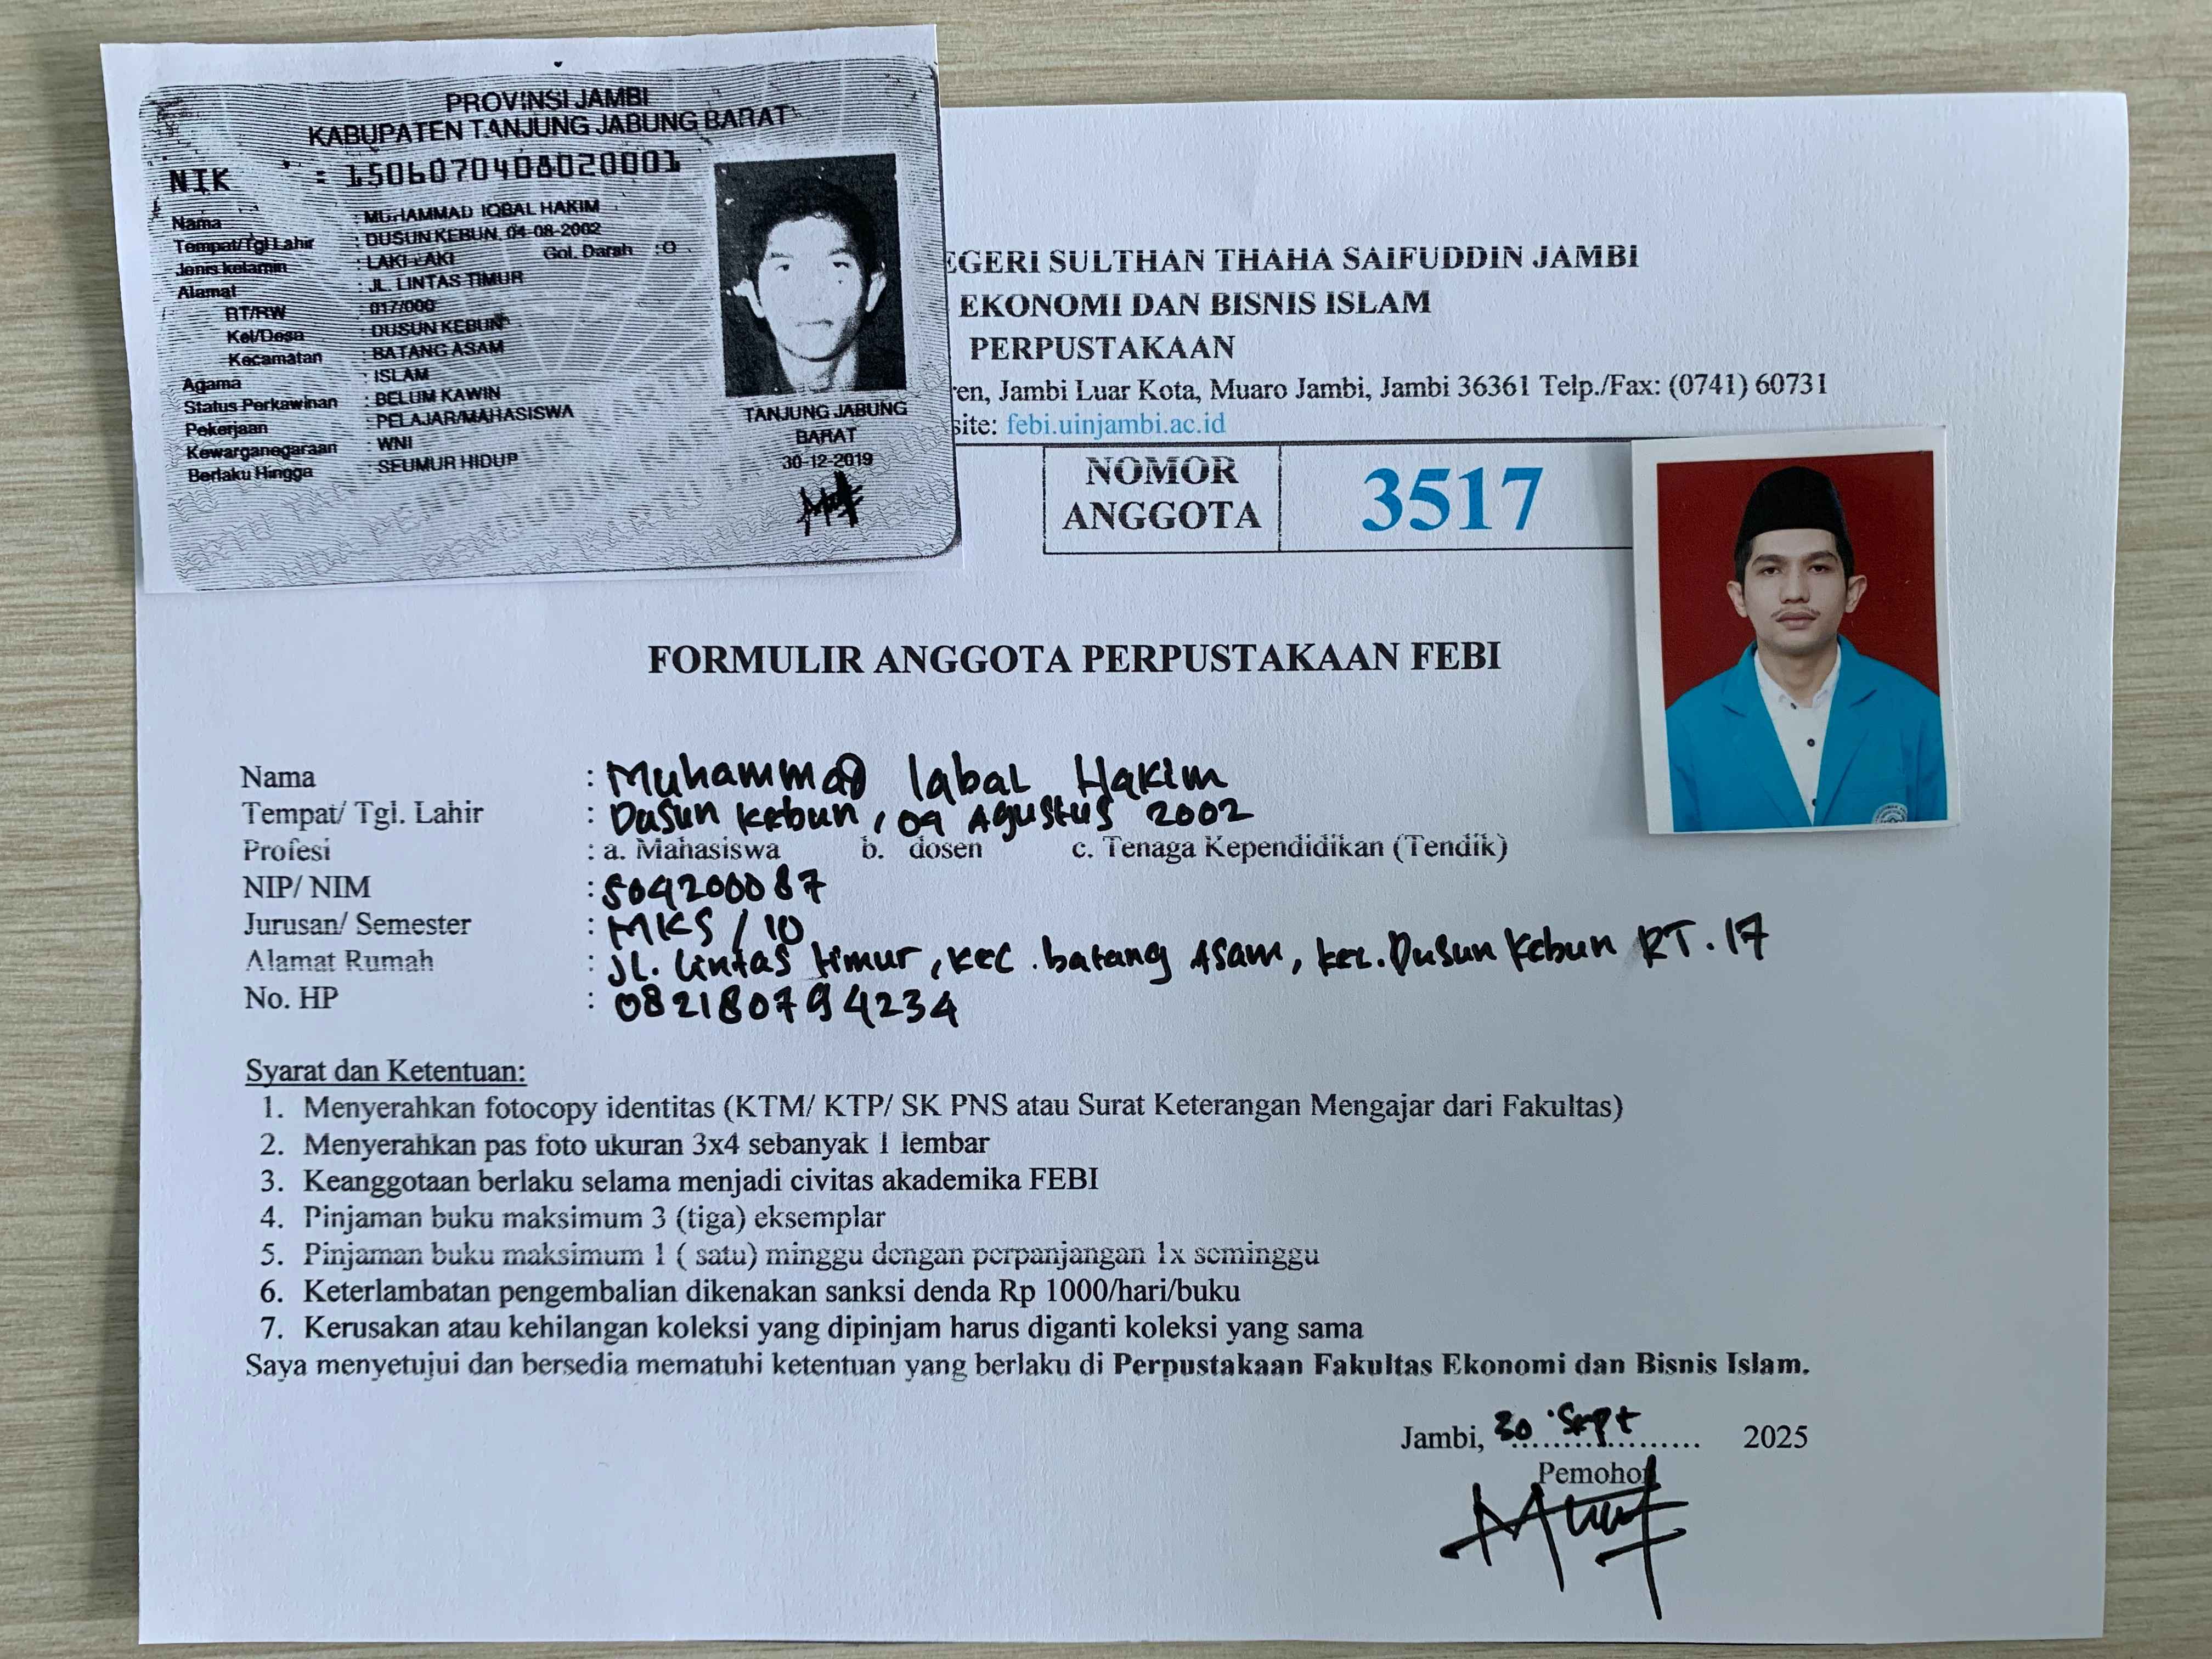 PROVINSI JAMBI
KABUPATEN TANJUNG JABUNG BARAT
NIK : 1506070408020001
Nama : MUHAMMAD IQBAL HAKIM
Tempat/Tgl Lahir : DUSUN KEBUN, 04-08-2002
Jenis kelamin : LAKI-LAKI Gol. Darah : O
Alamat : JL. LINTAS TIMUR
RT/RW : 017/000
Kel/Desa : DUSUN KEBUN
Kecamatan : BATANG ASAM
Agama : ISLAM
Status Perkawinan : BELUM KAWIN
Pekerjaan : PELAJAR/MAHASISWA
Kewarganegaraan : WNI
Berlaku Hingga : SEUMUR HIDUP
TANJUNG JABUNG
BARAT
30-12-2019
EGERI SULTHAN THAHA SAIFUDDIN JAMBI
EKONOMI DAN BISNIS ISLAM
PERPUSTAKAAN
ren, Jambi Luar Kota, Muaro Jambi, Jambi 36361 Telp./Fax: (0741) 60731
site: febi.uinjambi.ac.id
NOMOR
ANGGOTA
3517
FORMULIR ANGGOTA PERPUSTAKAAN FEBI
Nama : Muhammad Iqbal Hakim
Tempat/ Tgl. Lahir : Dusun Kebun, 04 Agustus 2002
Profesi : a. Mahasiswa b. dosen c. Tenaga Kependidikan (Tendik)
NIP/ NIM : 504200087
Jurusan/ Semester : MKS / 10
Alamat Rumah : JL. Lintas timur, kec. batang Asam, kec. Dusun Kebun RT. 17
No. HP : 082180794234
Syarat dan Ketentuan:
1. Menyerahkan fotocopy identitas (KTM/ KTP/ SK PNS atau Surat Keterangan Mengajar dari Fakultas)
2. Menyerahkan pas foto ukuran 3x4 sebanyak 1 lembar
3. Keanggotaan berlaku selama menjadi civitas akademika FEBI
4. Pinjaman buku maksimum 3 (tiga) eksemplar
5. Pinjaman buku maksimum 1 ( satu) minggu dengan perpanjangan 1x seminggu
6. Keterlambatan pengembalian dikenakan sanksi denda Rp 1000/hari/buku
7. Kerusakan atau kehilangan koleksi yang dipinjam harus diganti koleksi yang sama
Saya menyetujui dan bersedia mematuhi ketentuan yang berlaku di Perpustakaan Fakultas Ekonomi dan Bisnis Islam.
Jambi, 30 Sept 2025
Pemohon